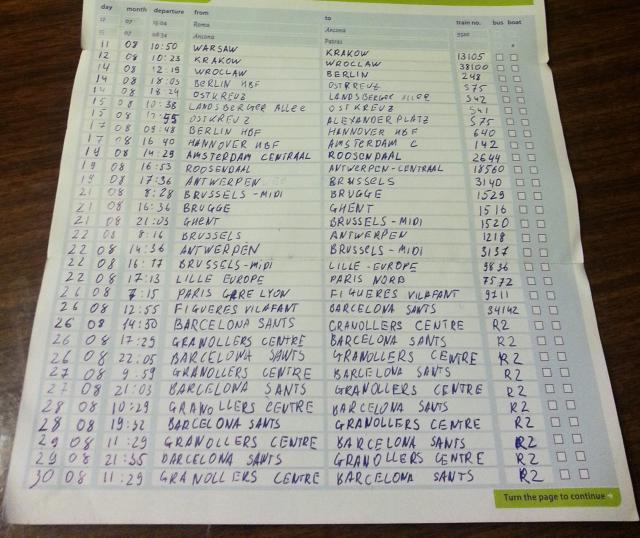 day month departure from to train no. bus boat
17 07 15:04 Roma Ancona
07 08:34 Ancona Patras
11 08 10:50 WARSAW KRAKOW 13105
12 08 10:23 KRAKOW WROCLAW 38100
14 08 12:19 WROCLAW BERLIN 248
14 08 18:03 BERLIN HBF OSTKREUZ S75
14 08 18:24 OSTKREUZ LANDSBERGER ALLEE S42
15 08 10:38 LANDSBERGER ALLEE OSTKREUZ S41
15 08 55 OSTKREUZ ALEXANDERPLATZ S75
17 08 09:48 BERLIN HBF HANNOVER HBF 640
17 08 16:40 HANNOVER HBF AMSTERDAM C 142
19 08 14:29 AMSTERDAM CENTRAAL ROOSENDAAL 2644
19 08 16:53 ROOSENDAAL ANTWERPEN-CENTRAAL 18560
19 08 17:36 ANTWERPEN BRUSSELS 3140
21 08 8:28 BRUSSELS-MIDI BRUGGE 1529
21 08 16:36 BRUGGE GHENT 1516
21 08 21:03 GHENT BRUSSELS-MIDI 1520
22 08 8:16 BRUSSELS ANTWERPEN 1218
22 08 14:36 ANTWERPEN BRUSSELS-MIDI 3137
22 08 16:17 BRUSSELS-MIDI LILLE-EUROPE 9836
22 08 17:13 LILLE EUROPE PARIS NORD 7572
26 08 7:15 PARIS GARE LYON FIGUERES VILAFANT 9711
26 08 12:55 FIGUERES VILAFANT BARCELONA SANTS 34142
26 08 14:50 BARCELONA SANTS GRANOLLERS CENTRE R2
26 08 17:29 GRANOLLERS CENTRE BARCELONA SANTS R2
26 08 22:05 BARCELONA SANTS GRANOLLERS CENTRE R2
27 08 9:59 GRANOLLERS CENTRE BARCELONA SANTS R2
27 08 21:03 BARCELONA SANTS GRANOLLERS CENTRE R2
28 08 10:29 GRANOLLERS CENTRE BARCELONA SANTS R2
28 08 19:32 BARCELONA SANTS GRANOLLERS CENTRE R2
29 08 11:29 GRANOLLERS CENTRE BARCELONA SANTS R2
29 08 21:35 BARCELONA SANTS GRANOLLERS CENTRE R2
30 08 11:29 GRANOLLERS CENTRE BARCELONA SANTS R2
Turn the page to continue